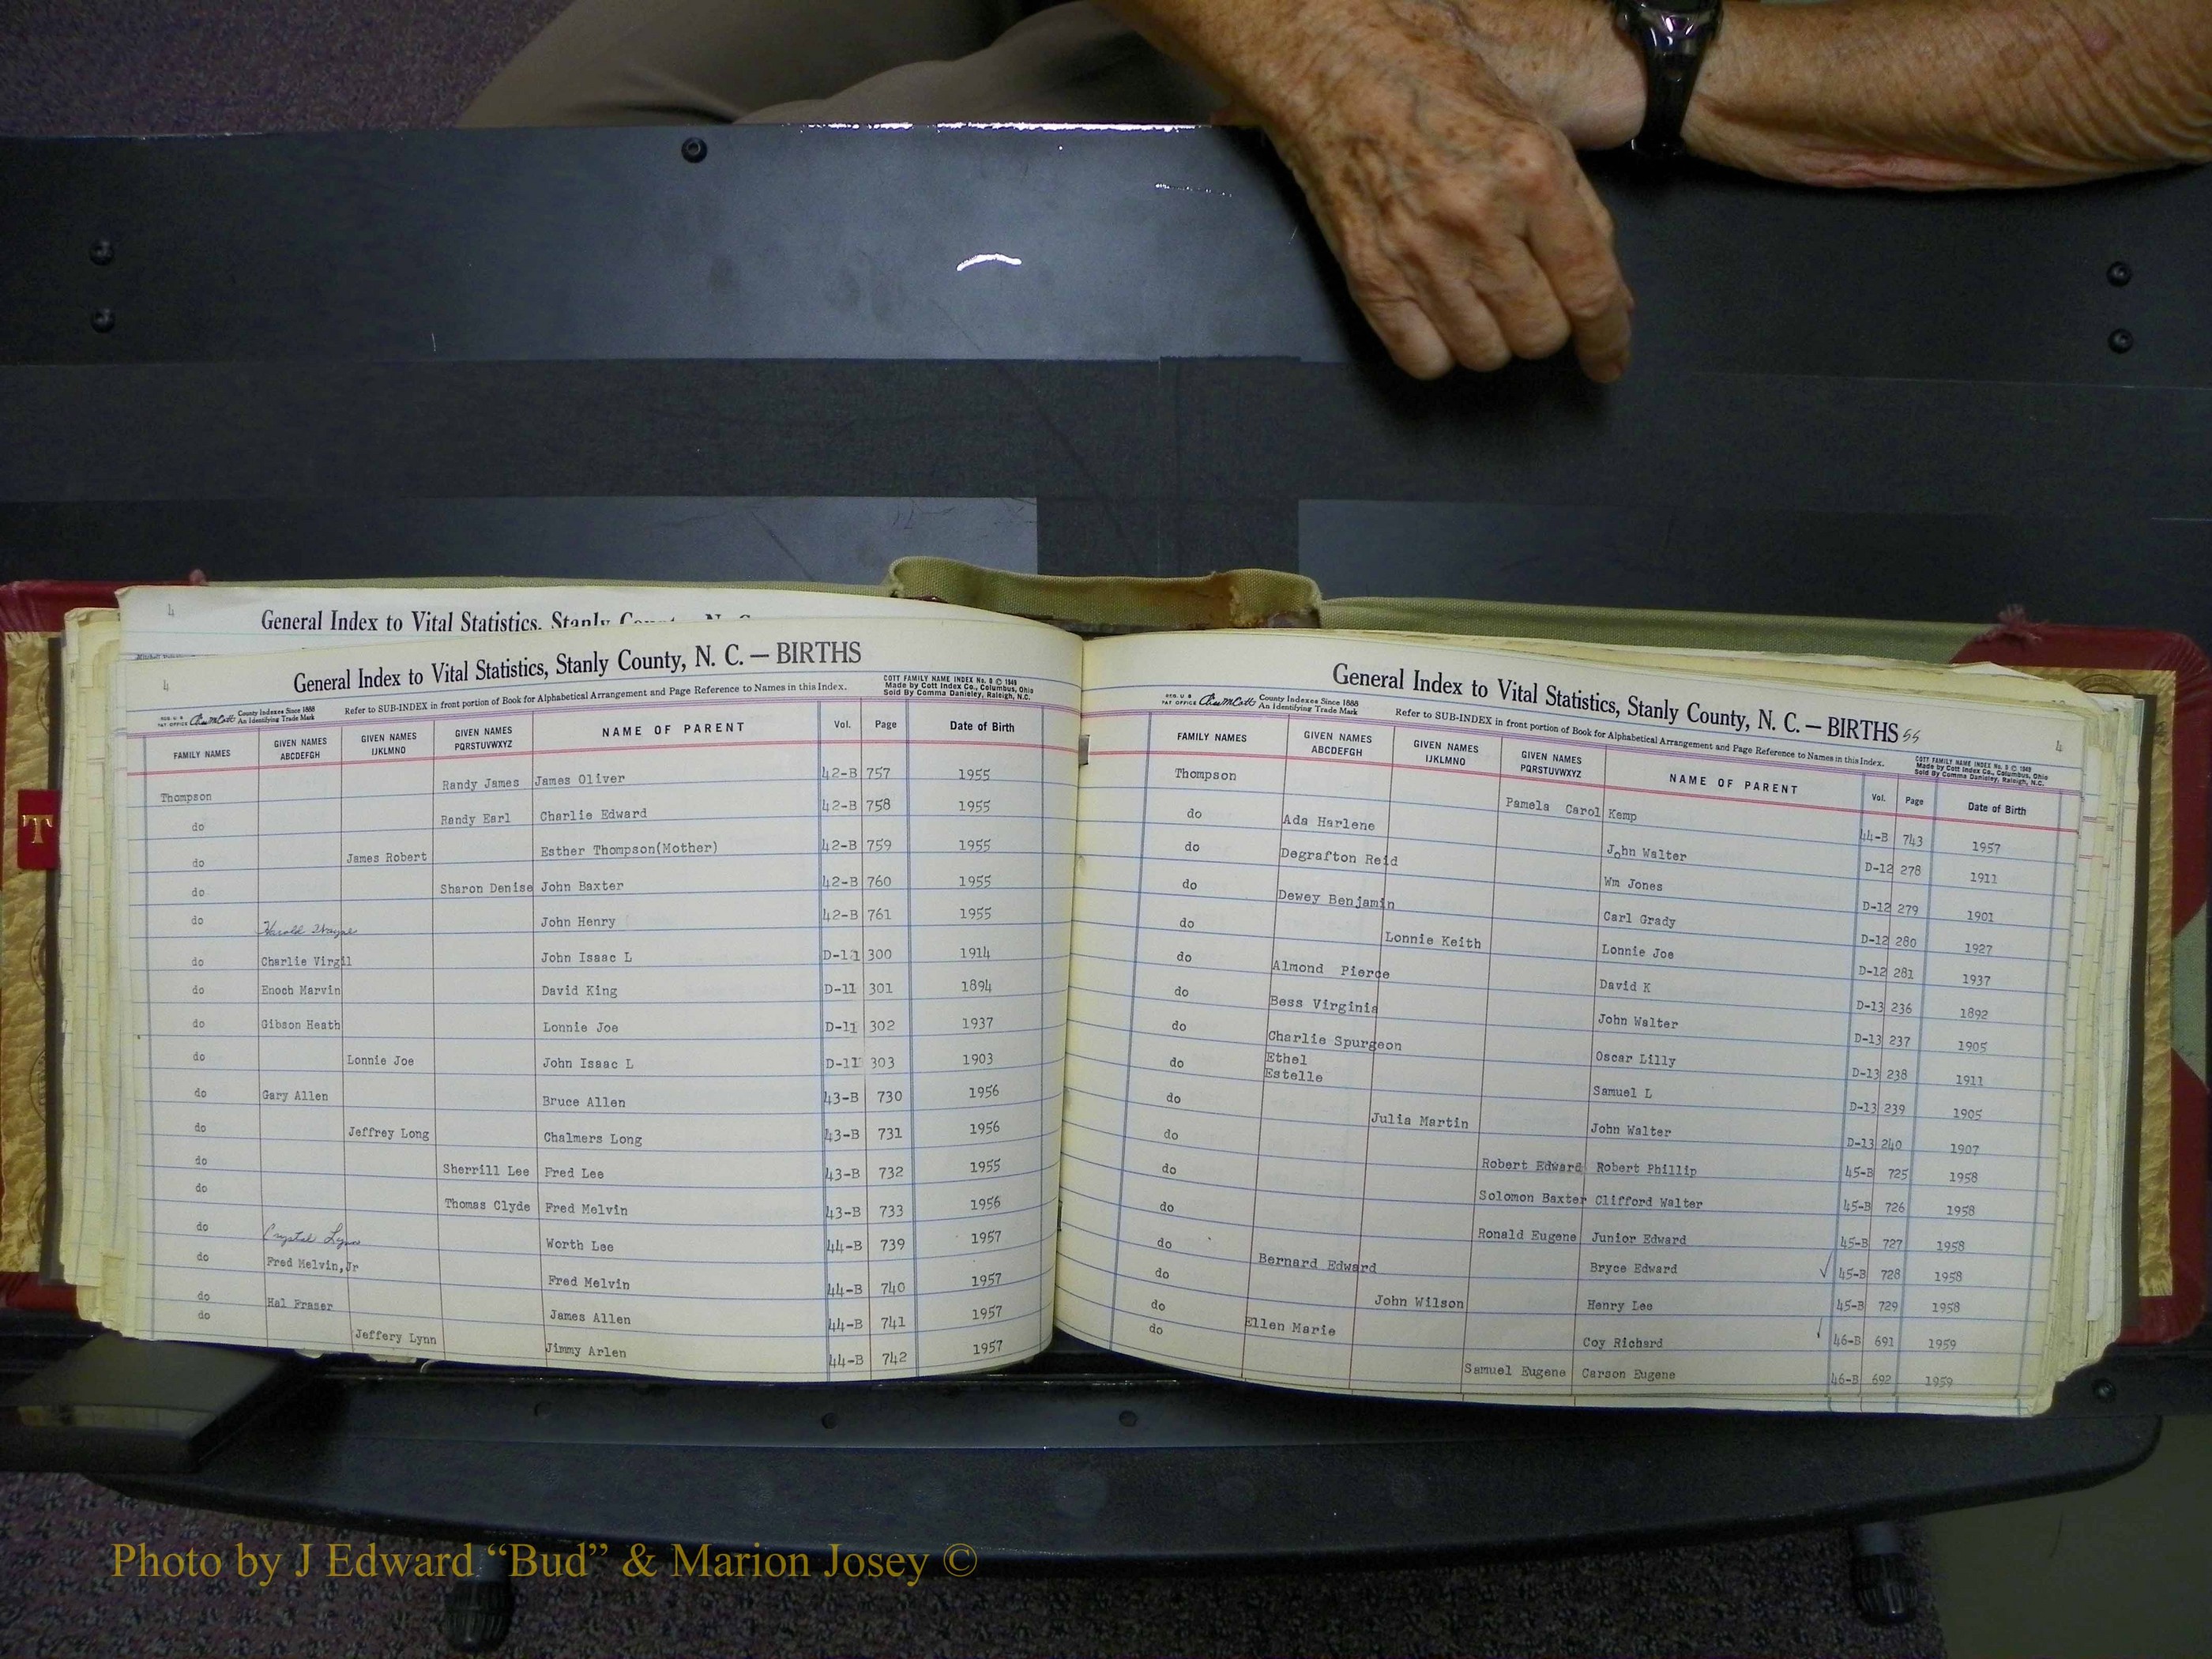 4
General Index to Vital Statistics, Stanly County, N. C.
4
General Index to Vital Statistics, Stanly County, N. C. — BIRTHS
COTT FAMILY NAME INDEX No. 8 © 1949
Made by Cott Index Co., Columbus, Ohio
Sold By Comma Danieley, Raleigh, N.C.
REG. U S PAT OFFICE County Indexes Since 1888 An Identifying Trade Mark
Refer to SUB-INDEX in front portion of Book for Alphabetical Arrangement and Page Reference to Names in this Index.
FAMILY NAMES GIVEN NAMES ABCDEFGH GIVEN NAMES IJKLMNO GIVEN NAMES PQRSTUVWXYZ NAME OF PARENT Vol. Page Date of Birth
Thompson Randy James James Oliver 42-B 757 1955
do Randy Earl Charlie Edward 42-B 758 1955
do James Robert Esther Thompson(Mother) 42-B 759 1955
do Sharon Denise John Baxter 42-B 760 1955
do Harold Wayne John Henry 42-B 761 1955
do Charlie Virgil John Isaac L D-11 300 1914
do Enoch Marvin David King D-11 301 1894
do Gibson Heath Lonnie Joe D-11 302 1937
do Lonnie Joe John Isaac L D-11 303 1903
do Gary Allen Bruce Allen 43-B 730 1956
do Jeffrey Long Chalmers Long 43-B 731 1956
do Sherrill Lee Fred Lee 43-B 732 1955
do Thomas Clyde Fred Melvin 43-B 733 1956
do Crystal Lynn Worth Lee 44-B 739 1957
do Fred Melvin,Jr Fred Melvin 44-B 740 1957
do Hal Fraser James Allen 44-B 741 1957
do Jeffery Lynn Jimmy Arlen 44-B 742 1957
General Index to Vital Statistics, Stanly County, N. C. — BIRTHS 55
4
REG. U S PAT OFFICE County Indexes Since 1888 An Identifying Trade Mark
Refer to SUB-INDEX in front portion of Book for Alphabetical Arrangement and Page Reference to Names in this Index.
COTT FAMILY NAME INDEX No. 8 © 1949
Made by Cott Index Co., Columbus, Ohio
Sold By Comma Danieley, Raleigh, N.C.
FAMILY NAMES GIVEN NAMES ABCDEFGH GIVEN NAMES IJKLMNO GIVEN NAMES PQRSTUVWXYZ NAME OF PARENT Vol. Page Date of Birth
Thompson Pamela Carol Kemp 44-B 743 1957
do Ada Harlene John Walter D-12 278 1911
do Degrafton Reid Wm Jones D-12 279 1901
do Dewey Benjamin Carl Grady D-12 280 1927
do Lonnie Keith Lonnie Joe D-12 281 1937
do Almond Pierce David K D-13 236 1892
do Bess Virginia John Walter D-13 237 1905
do Charlie Spurgeon Oscar Lilly D-13 238 1911
do Ethel Estelle Samuel L D-13 239 1905
do Julia Martin John Walter D-13 240 1907
do Robert Edward Robert Phillip 45-B 725 1958
do Solomon Baxter Clifford Walter 45-B 726 1958
do Ronald Eugene Junior Edward 45-B 727 1958
do Bernard Edward Bryce Edward ✓ 45-B 728 1958
do John Wilson Henry Lee 45-B 729 1958
do Ellen Marie Coy Richard 46-B 691 1959
do Samuel Eugene Carson Eugene 46-B 692 1959
T
Photo by J Edward “Bud” & Marion Josey ©